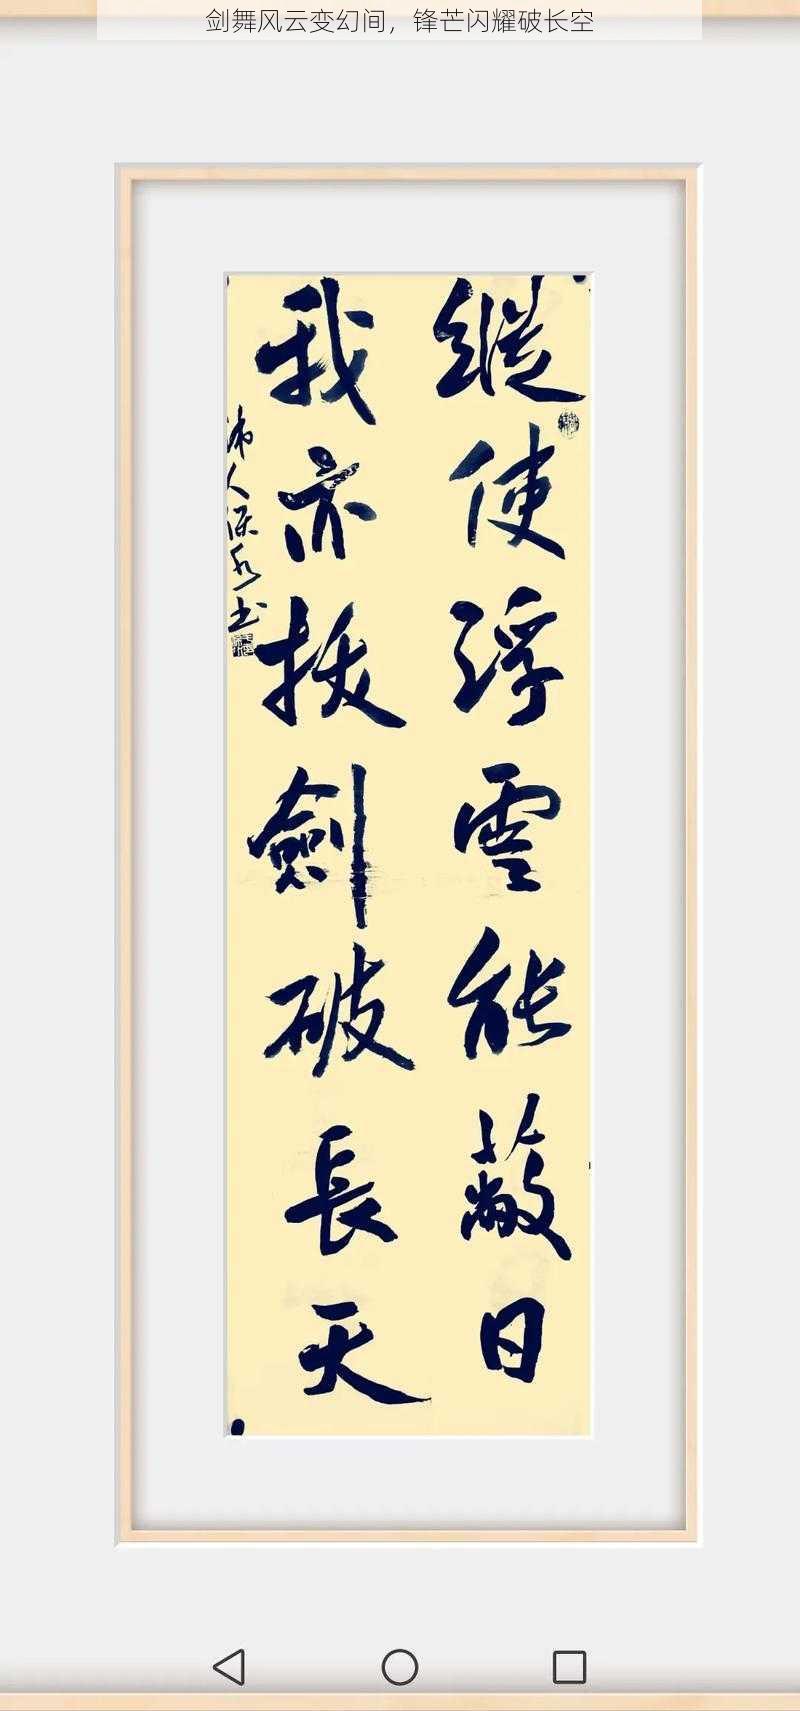 剑舞风云变幻间，锋芒闪耀破长空
縱使浮雲能蔽日
我亦拔劍破長天